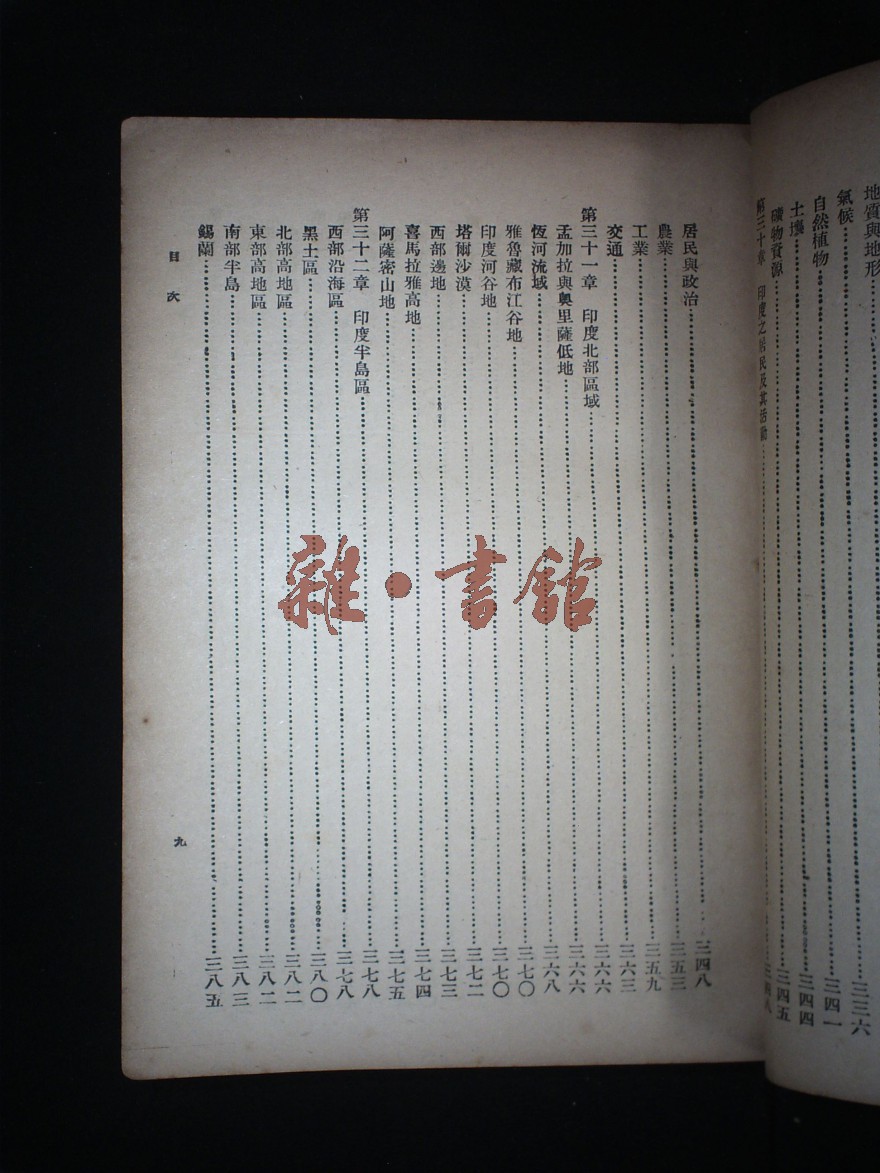 地質與地形……三三六
氣候……三四一
自然植物……三四四
土壤……三四五
礦物資源
第三十章　印度之居民及其活動……三四八
居民與政治……三四八
農業……三五三
工業……三五九
交通……三六三
第三十一章　印度北部區域……三六六
孟加拉與奧里薩低地……三六六
恆河流域……三六八
雅魯藏布江谷地……三七〇
印度河谷地……三七〇
塔爾沙漠……三七二
西部邊地……三七三
喜馬拉雅高地……三七四
阿薩密山地……三七五
第三十二章　印度半島區……三七八
西部沿海區……三七八
黑土區……三八〇
北部高地區……三八二
東部高地區……三八二
南部半島……三八三
錫蘭……三八五
目次
九
雜·書館